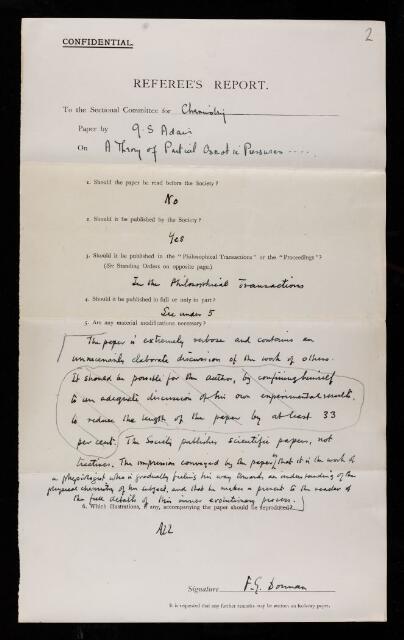 2
CONFIDENTIAL.
REFEREE'S REPORT.
To the Sectional Committee for Chemistry
Paper by G. S Adair
On A Theory of Partial Osmotic Pressures ....
1. Should the paper be read before the Society?
No
2. Should it be published by the Society?
Yes
3. Should it be published in the "Philosophical Transactions" or the "Proceedings"?
(See Standing Orders on opposite page.)
In the Philosophical Transactions
4. Should it be published in full or only in part?
See under 5
5. Are any material modifications necessary?
The paper is extremely verbose and contains an
unnecessarily elaborate discussion of the work of others.
It should be possible for the author, by confining himself
to an adequate discussion of his own experimental results,
to reduce the length of the paper by at least 33
per cent. The Society publishes scientific papers, not
treatises. The impression conveyed by the paper is that it is the work of
a physiologist who is gradually feeling his way towards an understanding of the
physical chemistry of his subject, and that he makes a present to the reader of
the full details of this inner evolutionary process.
6. Which illustrations, if any, accompanying the paper should be reproduced?
All
Signature F. G. Donnan
It is requested that any further remarks may be written on ordinary paper.